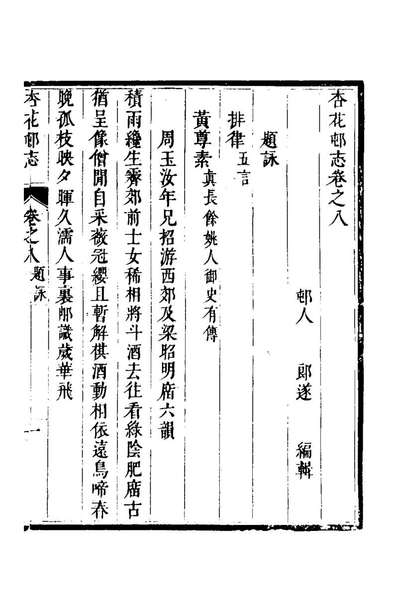 杏花邨志卷之八
邨人 郎遂 編輯
題詠
排律五言
黃尊素真長餘姚人御史有傳
周玉汝年兄招游西郊及梁昭明廟六韻
積雨纔生霽郊前士女稀相將斗酒去往看綠陰肥廟古
猶呈像僧閒自采薇冠纓且暫解棋酒動相依遠鳥啼春
晚孤枝映夕暉久濡人事裏那識歲華飛
杏花邨志
卷之八 題詠
一